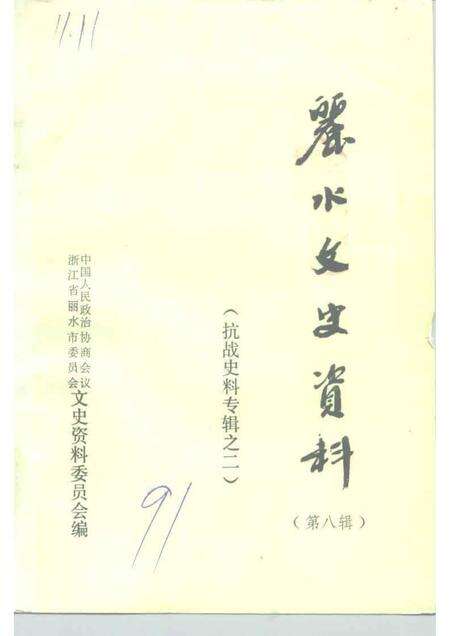 11.11
麗水文史資料
（第八辑）
（抗战史料专辑之二）
中国人民政治协商会议
浙江省丽水市委员会
文史资料委员会编
91